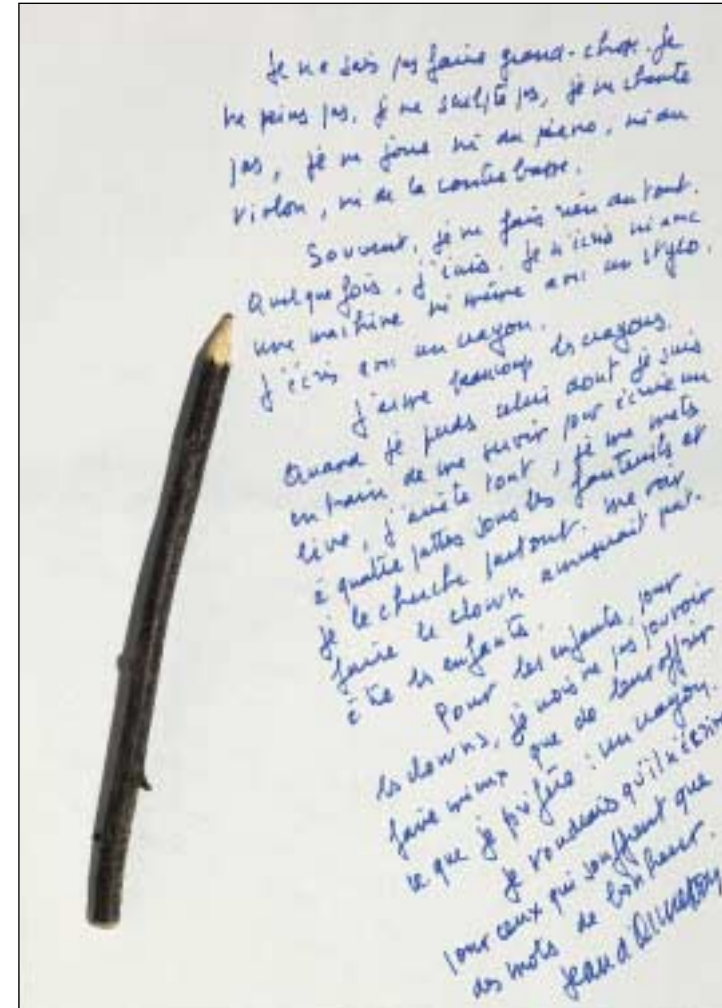 Je ne sais pas faire grand-chose. Je
ne peins pas, je ne sculpte pas, je ne chante
pas, je ne joue ni du piano, ni du
violon, ni de la contrebasse.
Souvent, je ne fais rien du tout.
Quelquefois, j'écris. Je n'écris ni avec
une machine ni même avec un stylo.
J'écris avec un crayon.
J'aime beaucoup les crayons.
Quand je perds celui dont je suis
en train de me servir pour écrire un
livre, j'arrête tout, je me mets
à quatre pattes sous les fauteuils et
je le cherche partout. Me voir
faire le clown amuserait peut-
être les enfants.
Pour les enfants, pour
les clowns, je crois ne pas pouvoir
faire mieux que de leur offrir
ce que je préfère : un crayon.
Je voudrais qu'il n'écrive
pour ceux qui souffrent que
des mots de bonheur.
Jean d'Ormesson